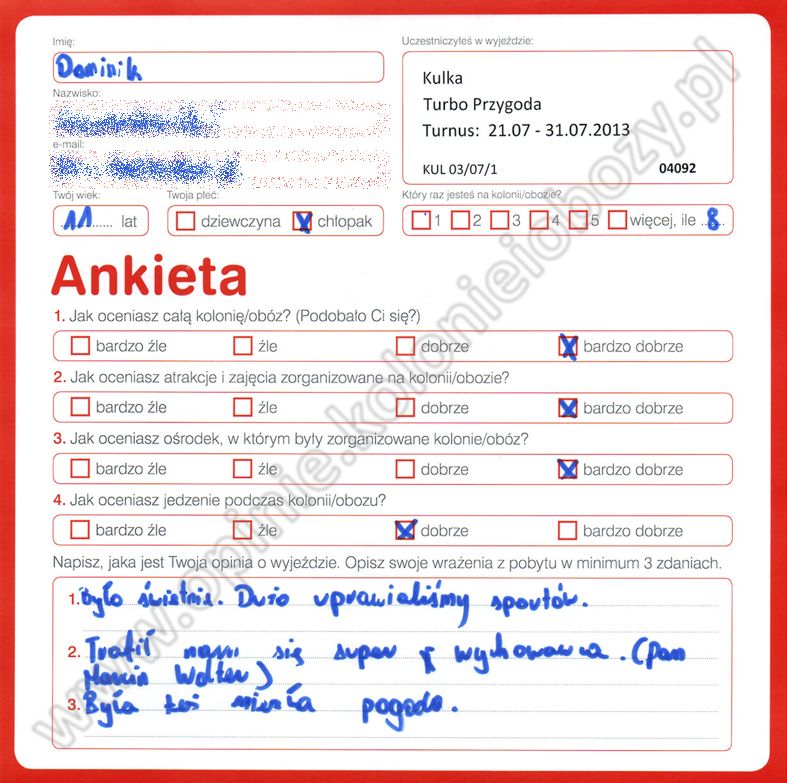 Imię:
Dominik
Uczestniczyłeś w wyjeździe:
Kulka
Turbo Przygoda
Turnus: 21.07 - 31.07.2013
KUL 03/07/1 04092
Nazwisko:
e-mail:
Twój wiek: Twoja płeć: Który raz jesteś na kolonii/obozie?
11 lat dziewczyna chłopak 1 2 3 4 5 więcej, ile 8
Ankieta
1. Jak oceniasz całą kolonię/obóz? (Podobało Ci się?)
bardzo źle źle dobrze bardzo dobrze
2. Jak oceniasz atrakcje i zajęcia zorganizowane na kolonii/obozie?
bardzo źle źle dobrze bardzo dobrze
3. Jak oceniasz ośrodek, w którym były zorganizowane kolonie/obóz?
bardzo źle źle dobrze bardzo dobrze
4. Jak oceniasz jedzenie podczas kolonii/obozu?
bardzo źle źle dobrze bardzo dobrze
Napisz, jaka jest Twoja opinia o wyjeździe. Opisz swoje wrażenia z pobytu w minimum 3 zdaniach.
1. Było świetnie. Dużo uprawialiśmy sportów.
2. Trafił nam się super wychowawca. (Pan
Marcin Wolter)
3. Była też pogoda.
www.opinie.kolonieiobozy.pl